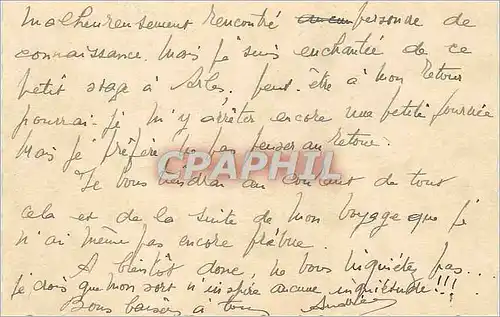 Malheureusement rencontré aucun personne de
connaissance. Mais je suis enchantée de ce
petit stage à Arles. peut-être à mon retour
pourrai-je m'y arrêter encore une petite journée
Mais je préfère ne pas penser au retour.
CPARAMA
Je vous tiendrai au courant de tout
cela et de la suite de mon voyage que je
n'ai même pas encore prévue.
A bientôt donc, ne vous inquiétez pas....
je crois que mon sort n'inspire aucune inquiétude!!!
Bons baisers à tous Andrée